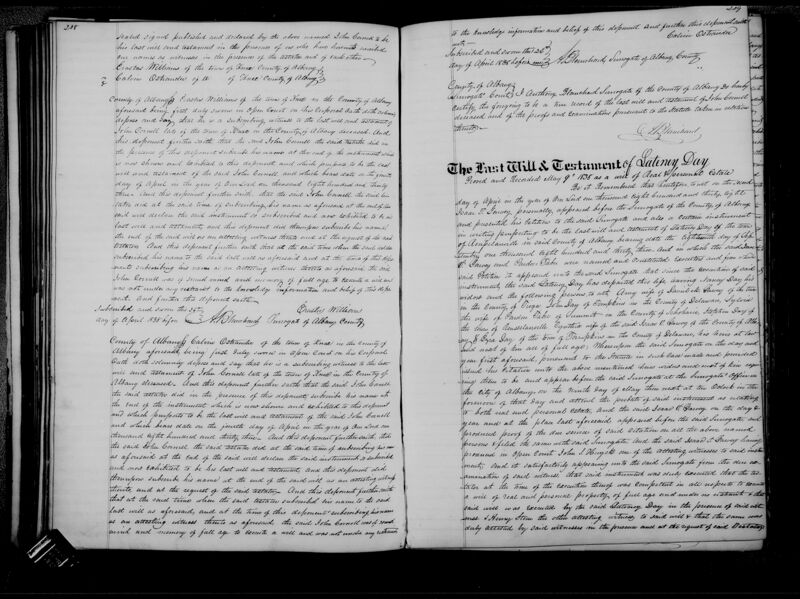 208
sealed signed published and declared by the above named John Cornel to be
his last will and testament in the presence of us who have hereunto subscribed
our names as witnesses in the presence of the testator and of each other
Erastus Williams of the town of Knox County of Albany
Calvin Ostrander of do of Knox County of Albany
County of Albany ss Erastus Williams of the town of Knox in the County of Albany
aforesaid being first duly sworn in Open Court on his Corporal Oath doth solemnly
depose and say that he is a subscribing witness to the last will and testament of
John Cornel late of the town of Knox in the County of Albany deceased. And
this deponent further saith that the said John Cornel the said testator did in
the presence of this deponent subscribe his name at the end of the instrument which
is now shown and exhibited to this deponent and which purports to be the last
will and testament of the said John Cornel and which bears date on the fourth
day of April in the year of our Lord one thousand eight hundred and thirty
three. And this deponent further saith that the said John Cornel the said tes-
tator did at the said time of subscribing his name as aforesaid at the end of the
said will declare the said instrument so subscribed and now exhibited to be his
last will and testament and this deponent did thereupon subscribe his name
at the end of the said will as an attesting witness thereto and at the request of the said
testator. And this deponent further saith that at the said time when the said testator
subscribed his name to the said last will as aforesaid and at the time of this depo-
nent subscribing his name as an attesting witness thereto as aforesaid the said
John Cornel was of sound mind and memory of full age to execute a will and
was not under any restraint to the knowledge information and belief of this depo-
nent. And further this deponent saith not
Subscribed and sworn this 26th Erastus Williams
day of April 1838 before me A. Blanchard Surrogate of Albany County
County of Albany ss Calvin Ostrander of the town of Knox in the County of
Albany aforesaid being first duly sworn in Open Court on his Corporal
Oath doth solemnly depose and say that he is a subscribing witness to the last
will and testament of John Cornel late of the town of Knox in the County of
Albany deceased. And this deponent further saith that the said John Cornel
the said testator did in the presence of this deponent subscribe his name at
the end of the instrument which is now shown and exhibited to this deponent
and which purports to be the last will and testament of the said John Cornel
and which bears date on the fourth day of April in the year of our Lord one
thousand eight hundred and thirty three. And this deponent further saith that
the said John Cornel the said testator did at the said time of subscribing his name
as aforesaid at the end of the said will declare the said instrument so subscribed
and now exhibited to be his last will and testament, and this deponent did
thereupon subscribe his name at the end of the said will as an attesting witness
thereto and at the request of the said testator. And this deponent further saith
that at the said time when the said testator subscribed his name to the said
last will as aforesaid, and at the time of this deponent subscribing his name
as an attesting witness thereto as aforesaid the said John Cornel was of sound
mind and memory of full age to execute a will and was not under any restraint
209
to the knowledge information and belief of this deponent And further this deponent saith
not Calvin Ostrander
Subscribed and sworn this 26th
day of April 1838 before me A. Blanchard, Surrogate of Albany County
County of Albany
Surrogate Court I Anthony Blanchard Surrogate of the County of Albany do hereby
certify the foregoing to be a true record of the last will and testament of John Cornel
deceased and of the proofs and examinations pursuant to the Statute taken in relation
thereto. A. Blanchard
The Last Will & Testament of Lateney Day
Proved and Recorded May 9th 1838 as a will of Real & Personal Estate
Be it Remembered that heretofore to wit on the second
day of April in the year of Our Lord one thousand eight hundred and thirty eight
Isaac P. Sawey personally appeared before the Surrogate of the County of Albany
and presented his Petition to the said Surrogate and also a certain instrument
in writing purporting to be the last will and testament of Lateney Day of the town
of Rensselaerville in said County of Albany bearing date the eighteenth day of
one thousand eight hundred and thirty three, and in which the said Isaac
P. Sawey and were named and constituted executors and from the
said Petition it appeared unto the said Surrogate that since the execution of said
instrument, the said Lateney Day has departed this life leaving Nancy Day his
widow and the following persons to wit, wife of Samuel of the town
in the County of Tioga John Day of Tompkins in the County of Delaware, Sylvia
the wife of of Summit in the County of Schoharie, Stephen Day of
the town of Rensselaerville Cynthia wife of the said Isaac P. Sawey of the County of Alba-
ny & Day of the town of Tompkins in the County of Delaware, his heirs at law
and next of kin all of full age; Whereupon the said Surrogate on the day and
year first aforesaid, pursuant to the Statute in such case made and provided
issued his Citation unto the above mentioned heirs widow and next of kin requi-
ring them to be and appear before the said Surrogate at the Surrogate's Office in
the City of Albany on the Ninth day of May then next at ten Oclock in the
forenoon of that day and attend the probate of said instrument as relating
to both real and personal estate, and the said Isaac P. Sawey on the day &
year and at the place last aforesaid appeared before the said Surrogate and
produced proof of the due service of said Citation on all the above named
persons & filed the same with said Surrogate. And the said Isaac P. Sawey having
produced in Open Court John S. one of the attesting witnesses to said instru-
ment; And it satisfactorily appearing unto the said Surrogate from the due ex-
amination of said witness that said instrument was duly executed that the tes-
tator at the time of the execution thereof was competent in all respects to execute
a will of real and personal property, of full age and under no restraint & that
said will was executed by the said Lateney Day in the presence of said wit-
ness & Henry Stone the other attesting witness to said will & that the same was
duly attested by said witnesses in the presence and at the request of said Testator